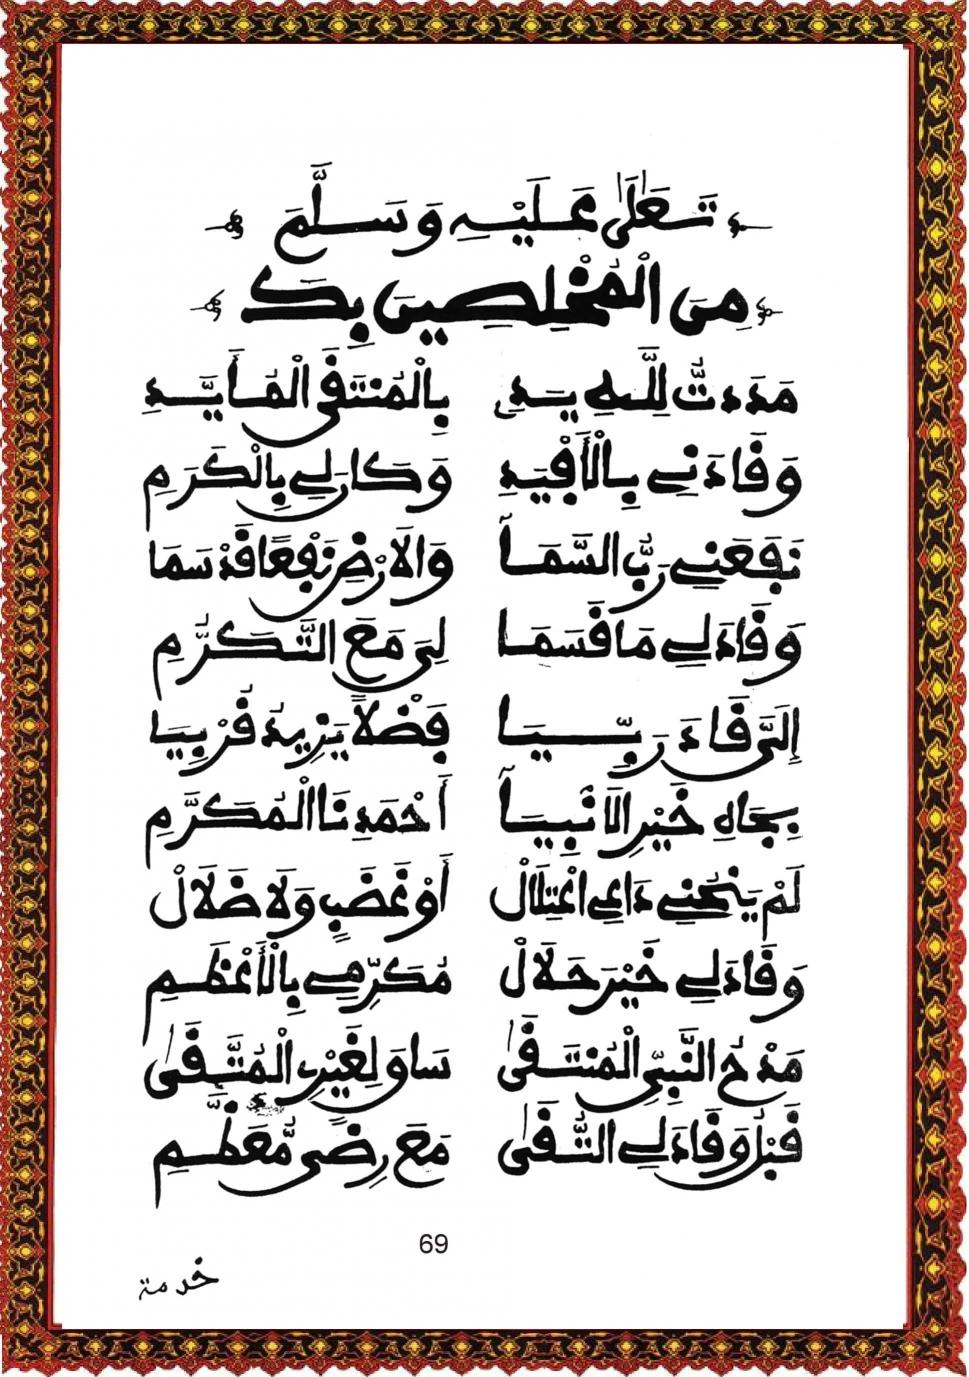 تَعَالَىٰ عَلَيْهِ وَسَلَّمَ
مِنَ الْمُخْلِصِينَ بِكَ
مَدَدتُّ لِلَّهِ يَدِي بِالْمُنتَقَى الْمُأَيَّدِ
وَقَادَنِي بِالْأَفْيَدِ وَكَانَ لِي بِالْكَرَمِ
نَفَعَنِي رَبُّ السَّمَآ وَالَارْضِ نَفْعًا قَدْ سَمَا
وَقَادَ لِي مَا قَسَمَا لِيَ مَعَ التَّكَرُّمِ
إِلَىَّ قَادَ رَبِّيَا فَضْلًا يَزِيدُ قُرْبِيَا
بِجَاهِ خَيْرِ الَانْبِيَآ أَحْمَدِنَا الْمُكَرَّمِ
لَمْ يَنْحُنِي دَاعِي اعْتِلَالْ أَوْ غَضَبٍ وَلَا ضَلَالْ
وَقَادَ لِي خَيْرَ حَلَالْ مُكَرِّمِي بِالْأَعْظَمِ
مَدْحُ النَّبِيِّ الْمُنتَقَىٰ سَاوَ لِغَيْرِ الْمُتَّقَىٰ
قَبْلُ وَقَادَ لِي التُّقَىٰ مَعَ رِضًى مُّعَظَّمِ
69
خدمة